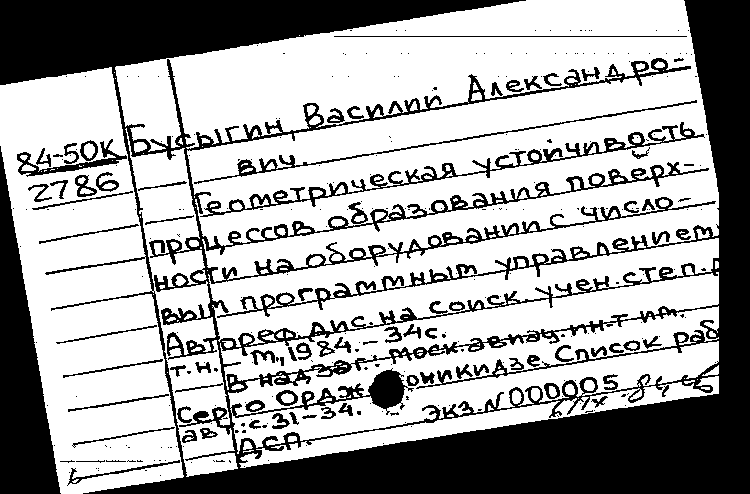 84-50К
2786
Бусыгин, Василий Александро-
вич.
Геометрическая устойчивость
процессов образования поверх-
ности на оборудовании с число-
вым программным управлением
Автореф. дис. на соиск. учен. степ.
т.н. - М., 1984. - 34с.
В надзаг.: Моск. авиац. ин-т им.
Серго Орджоникидзе. Список раб
авт.: с. 31-34.
Экз. N 000005
ДСП.